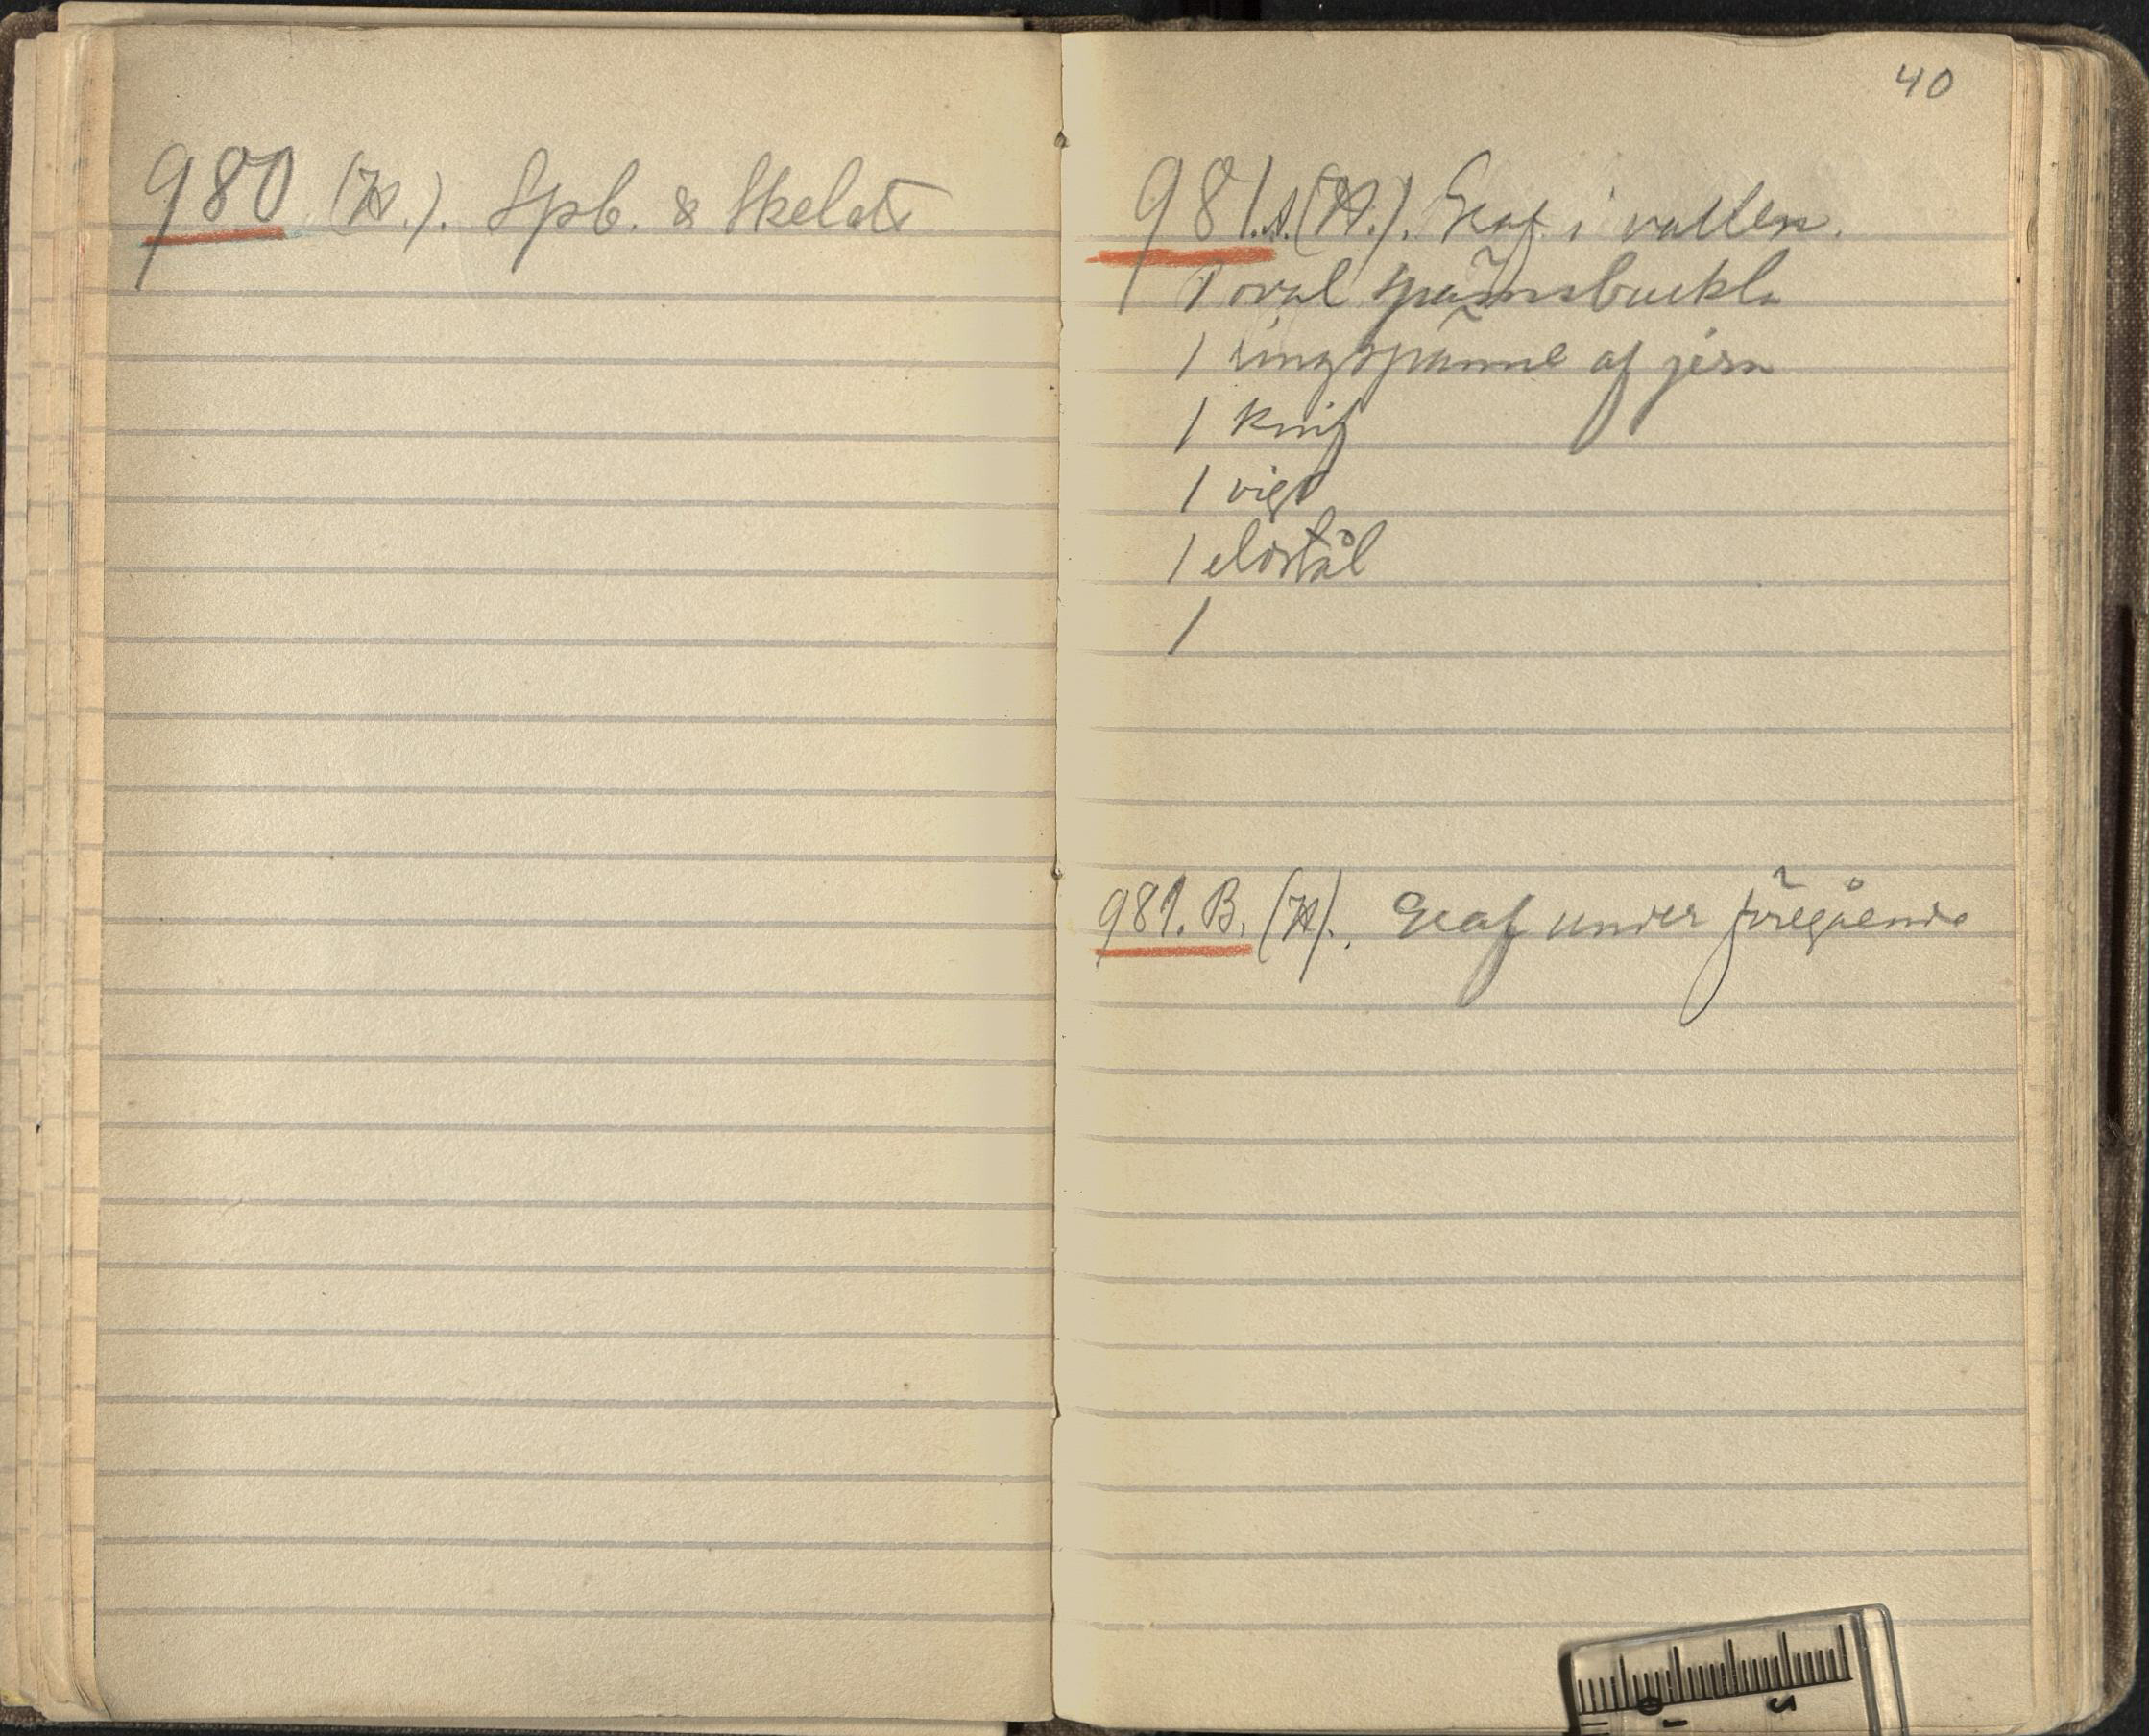 980 (H.). Spb. & Skelett
40
981.A.(H.). Graf i vallen.
1 oval spännsbuckla
1 ringspänne af jern
1 knif
1 vigt
1 eldstål
1
981. B. (H). Graf under föregående